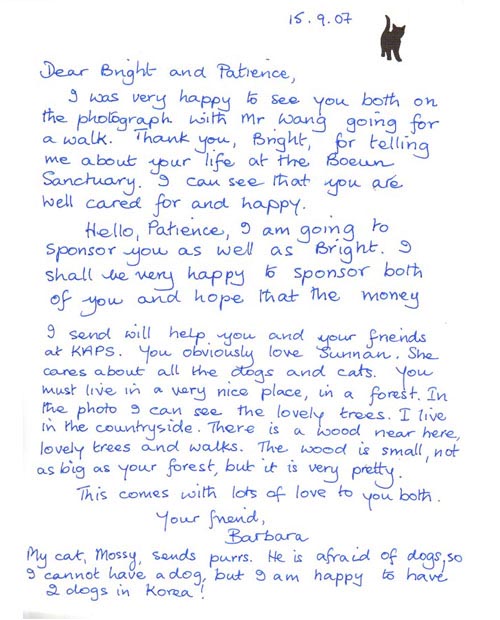 15.9.07
Dear Bright and Patience,
I was very happy to see you both on
the photograph with Mr Wang going for
a walk. Thank you, Bright, for telling
me about your life at the Boeun
Sanctuary. I can see that you are
well cared for and happy.
Hello, Patience, I am going to
sponsor you as well as Bright. I
shall be very happy to sponsor both
of you and hope that the money
I send will help you and your friends
at KAPS. You obviously love Sunnan. She
cares about all the dogs and cats. You
must live in a very nice place, in a forest. In
the photo I can see the lovely trees. I live
in the countryside. There is a wood near here,
lovely trees and walks. The wood is small, not
as big as your forest, but it is very pretty.
This comes with lots of love to you both.
Your friend,
Barbara
My cat, Mossy, sends purrs. He is afraid of dogs, so
I cannot have a dog, but I am happy to have
2 dogs in Korea!